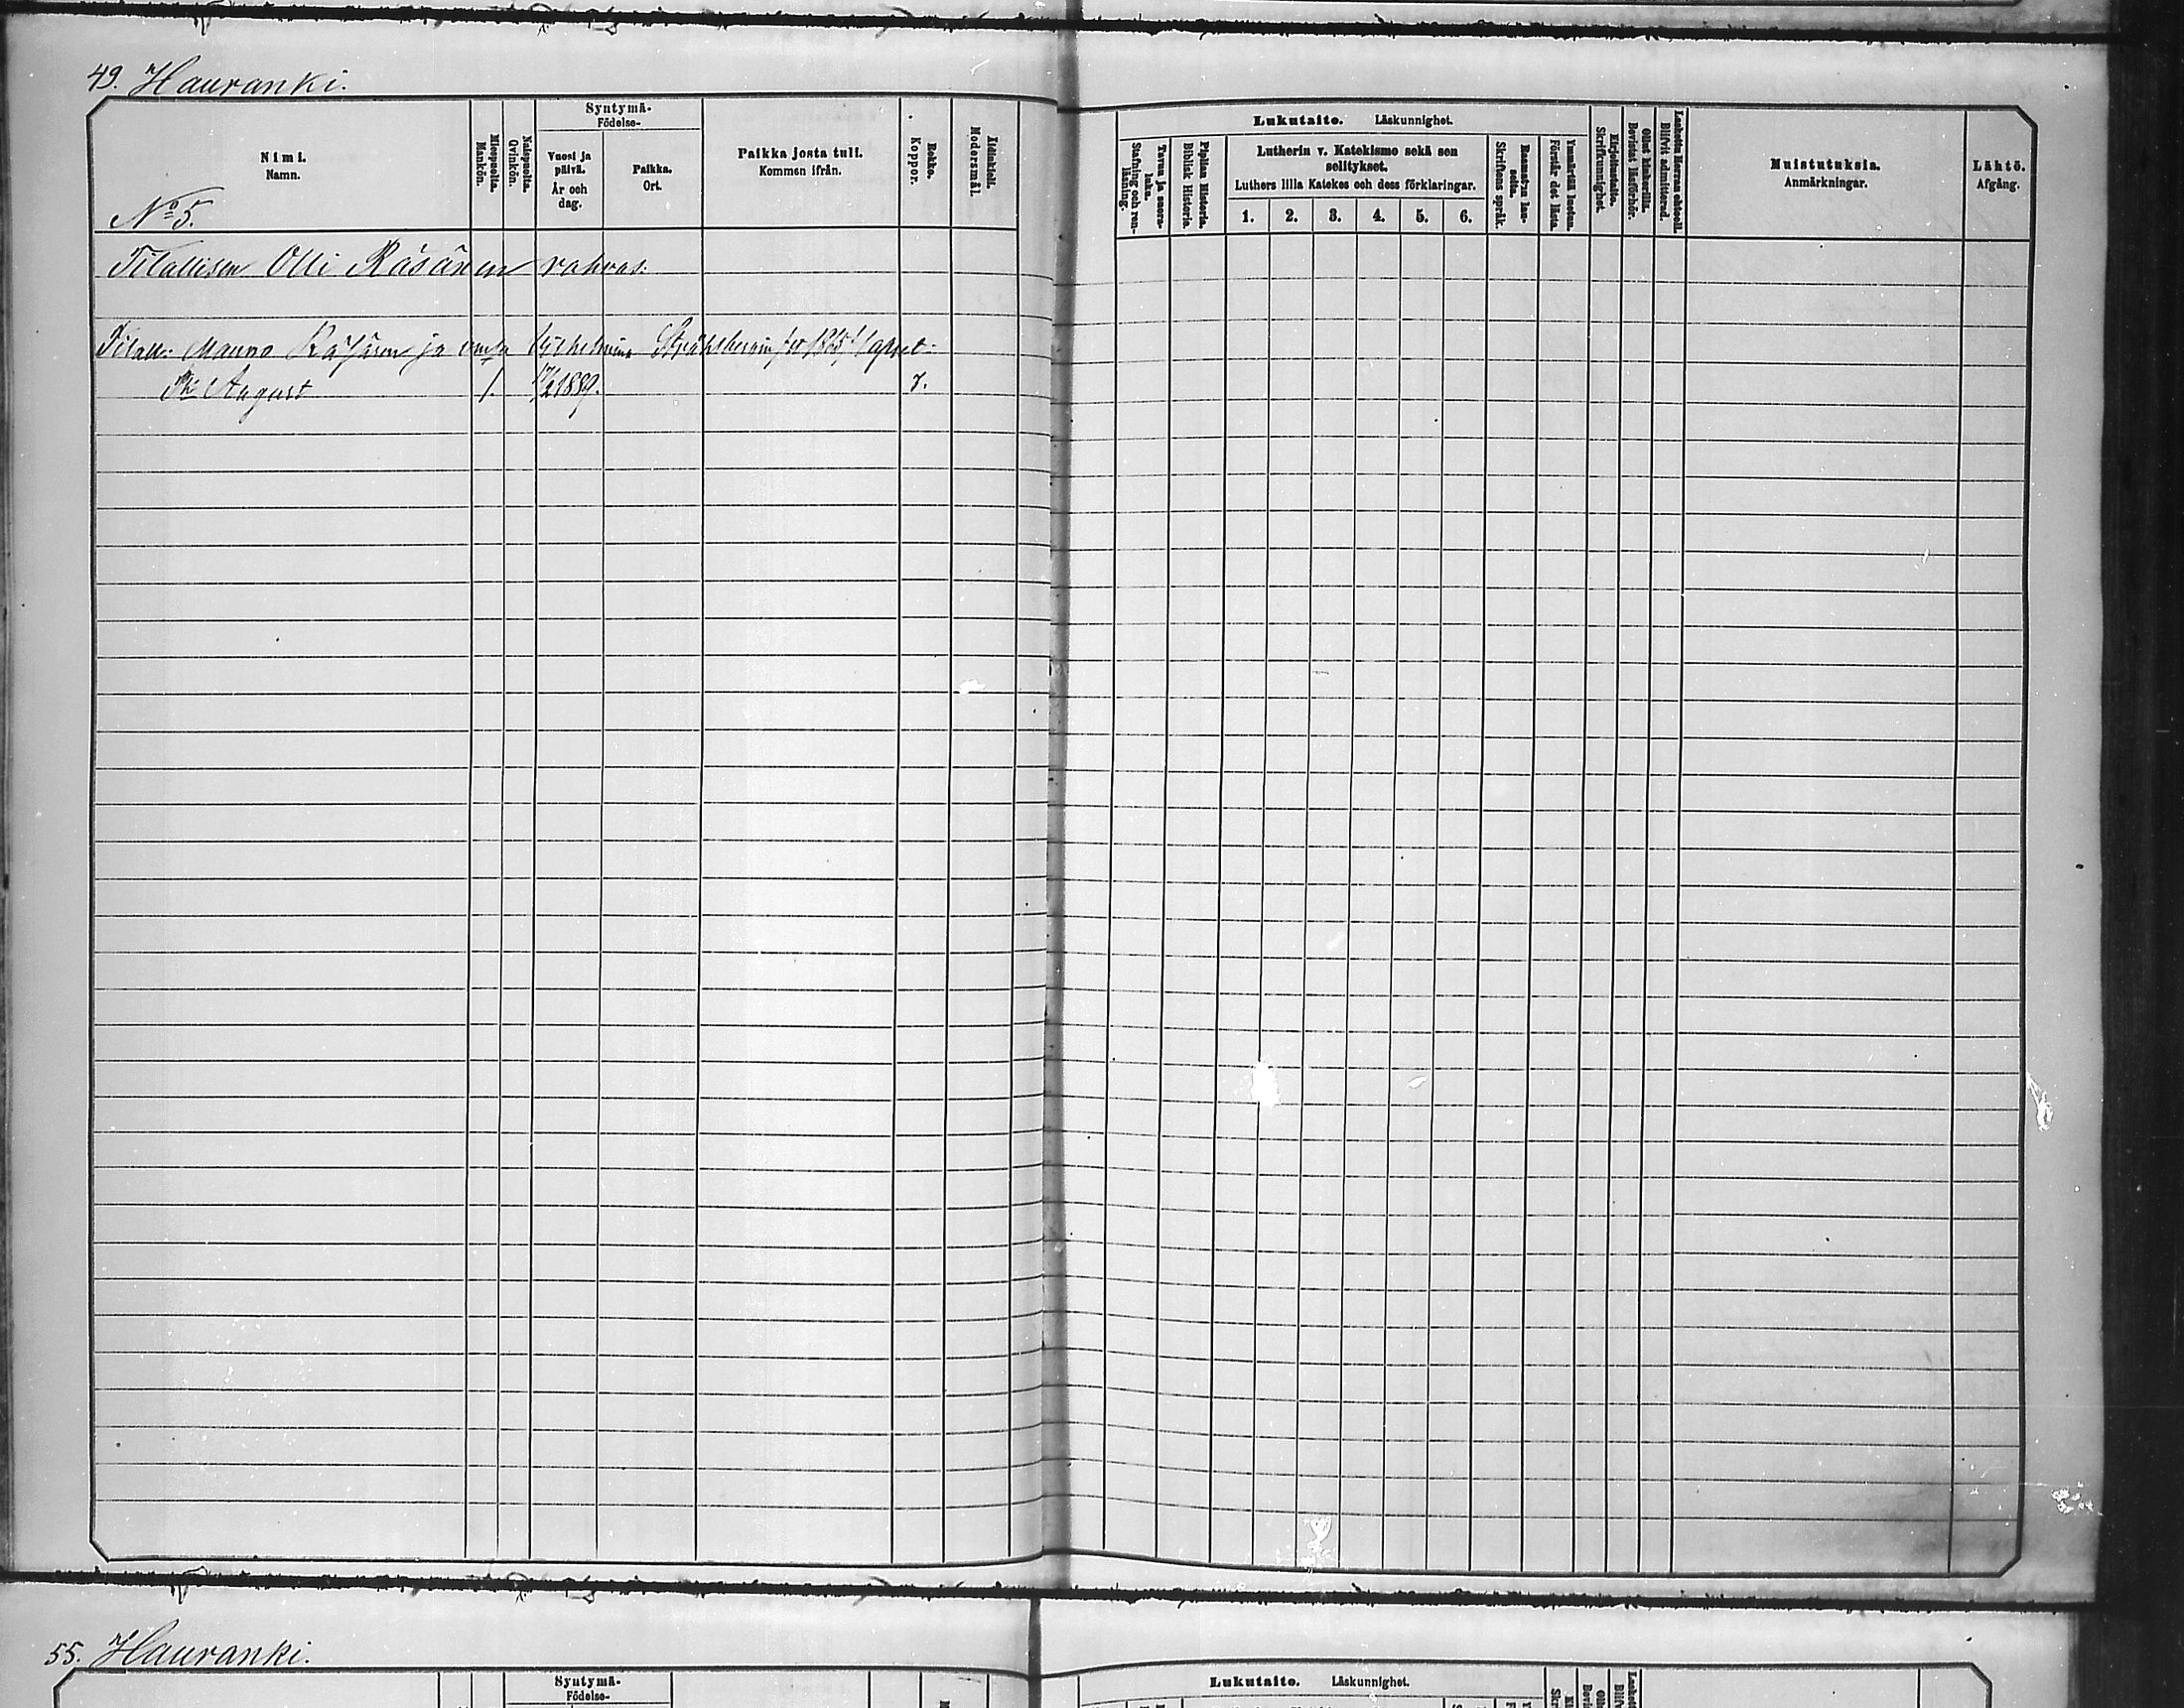 49. Hauranki.
Nimi.
Namn.
Miespuolta.
Mankön.
Naispuolta.
Qvinkön.
Syntymä-
Födelse-
Vuosi ja
päivä.
År och
dag.
Paikka.
Ort.
Paikka josta tuli.
Kommen ifrån.
Rokko.
Koppor.
Äidinkieli.
Modersmål.
No 5.
Tilallisen Olli Räsänen rahvas:
Tilall: Mauno Räsänen ja emsä
Pk August 1. 1889. r.
Lukutaito. Läskunnighet.
Tavuu ja suora-
luku.
Stafning och ren-
läsning.
Piplian Historia.
Biblisk Historia.
Lutherin v. Katekismo sekä sen
selitykset.
Luthers lilla Katekes och dess förklaringar.
1. 2. 3. 4. 5. 6.
Raamatun lau-
seita.
Skriftens språk.
Ymmärtää luetun.
Förstår det lästa.
Kirjoitustaito.
Skriftkunnighet.
Ollut kinkerillä.
Bevistat läsförhör.
Laskettu Herran ehtooll.
Blifvit admitterad.
Muistutuksia.
Anmärkningar.
Lähtö.
Afgång.
55. Hauranki.
Syntymä-
Födelse-
Lukutaito. Läskunnighet.